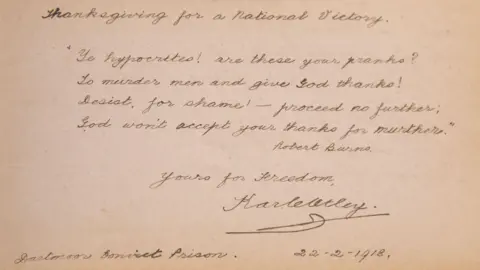 Thanksgiving for a National Victory.
"Ye hypocrites! are these your pranks?
To murder men and give God thanks!
Desist, for shame! — proceed no further;
God won't accept your thanks for murther."
Robert Burns.
Yours for Freedom,
Dartmoor Convict Prison. 22-2-1918.